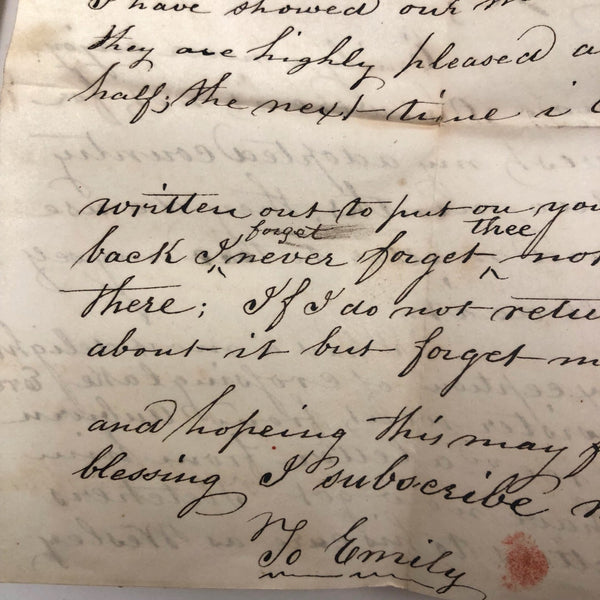 I have showed our
they are highly pleased a
half; the next time i
written out to put on you
forget thee
back I never forget not
there; If I do not retu
about it but forget m
and hoping this may f
blessing I subscribe
To Emily